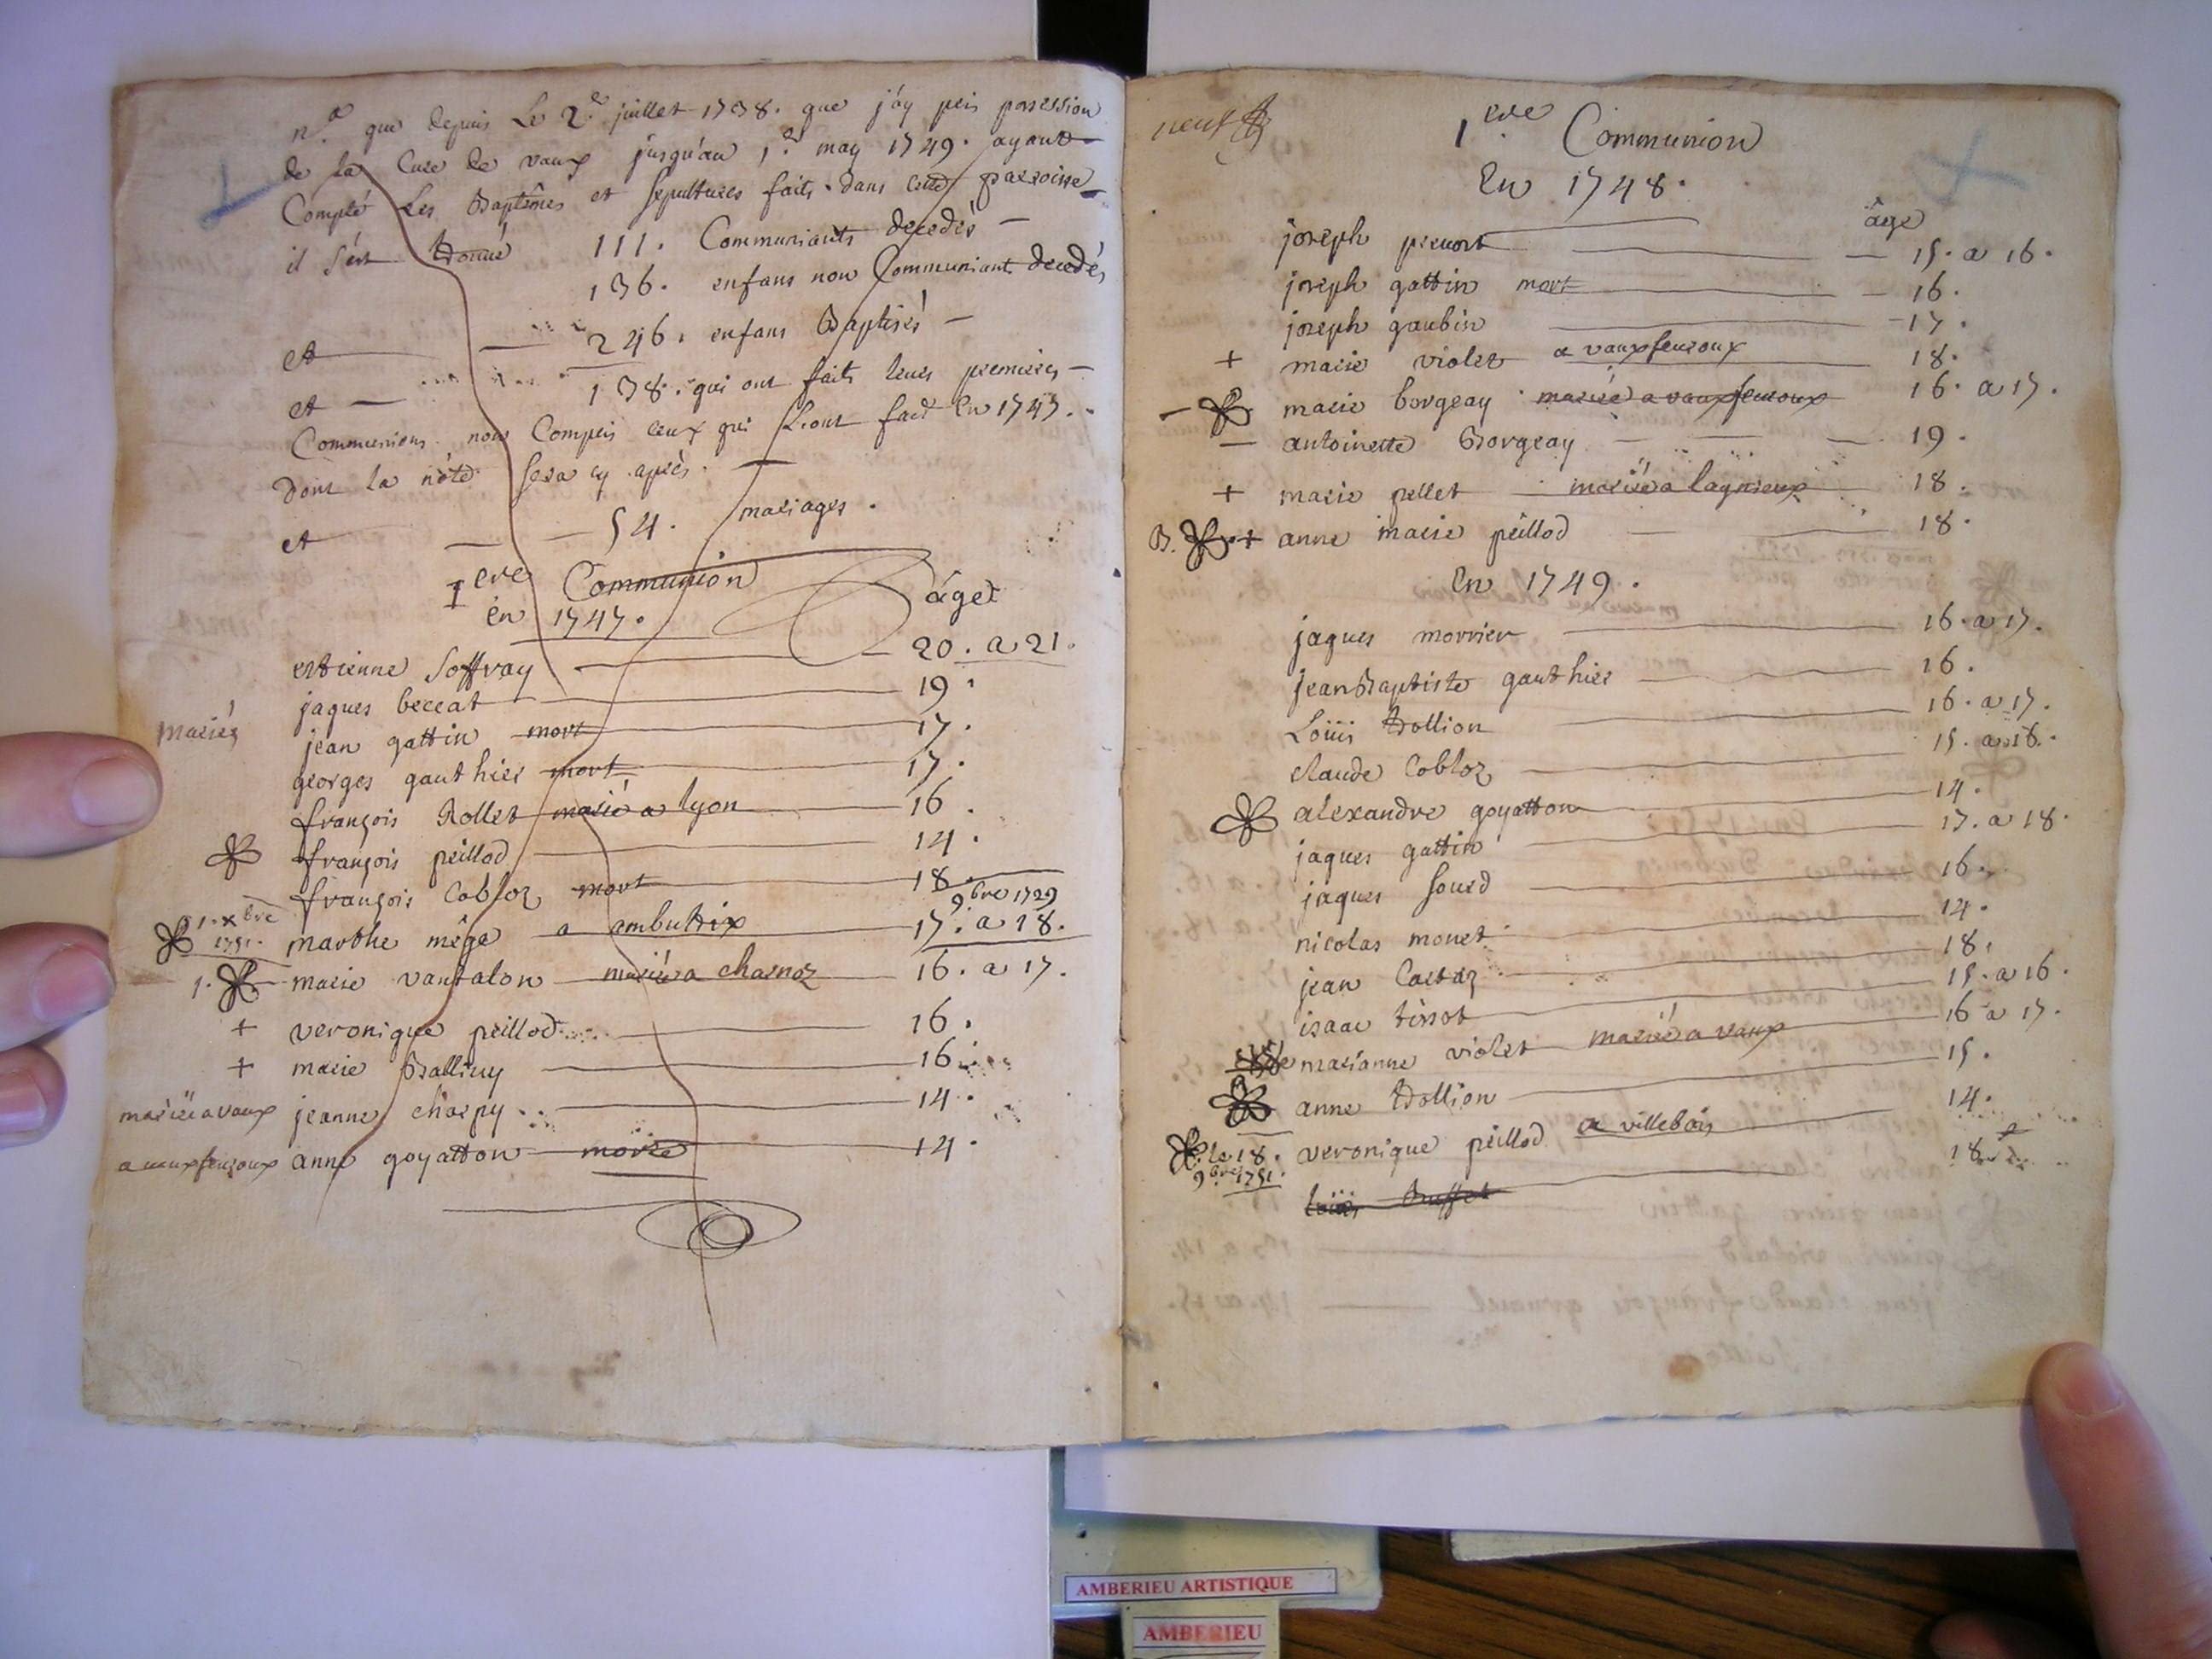 n.a que depuis Le 2.e juillet 1738. que j'ay pris possession
de la Cure de vaux jusqu'au 1.er may 1749. ayant
Compté Les Baptêmes et sepultures faits dans cette parroisse
il s'est trouvé 111. Communiants decedés
136. enfans non Communiant decedés
et 246. enfans Baptisés
et 138. qui ont faits leurs premieres
Communions non Compris ceux qui L'ont fait En 1747.
dont la note sera cy après.
et 54. mariages.
1ere Communion
en 1747. âget
estienne soffray 20. a 21.
jaques beccat 19.
mariés jean gattin mort 17.
georges gauthier mort 17.
françois Rollet marié a lyon 16.
françois peillod 14.
françois Cobloz mort 18.
1. xbre 1751. marthe mêge a ambutrix 9.bre 1729 17. a 18.
1. marie vantalon mariée a charnoz 16. a 17.
+ veronique peillod 16.
+ marie Balliuy 16.
mariée a vaux jeanne charpy 14.
a vauxfeuroux anne goyatton morte 14.
neuf
1ere Communion
En 1748.
âge
joseph preuost 15. a 16.
joseph gattin mort 16.
joseph gaubin 17.
+ marie violet a vauxfeuroux 18.
marie borgeay mariée a vauxfeuroux 16. a 17.
antoinette Borgeay 19.
+ marie pellet mariée a lagnieux 18.
B. + anne marie peillod 18.
En 1749.
jaques morrier 16. a 17.
jean Baptiste gauthier 16.
Loüis trollion 16. a 17.
claude Cobloz 15. a 18.
alexandre goyatton 14.
jaques gattin 17. a 18.
jaques sourd 16.
nicolas monet 14.
jean Costaz 18.
isaac tissot 15. a 16.
marianne violet mariée a vaux 16 a 17.
anne trollion 15.
le 18. 9.bre 1751. veronique peillod a villebois 14.
loüis Buffet 18
AMBERIEU ARTISTIQUE
AMBERIEU